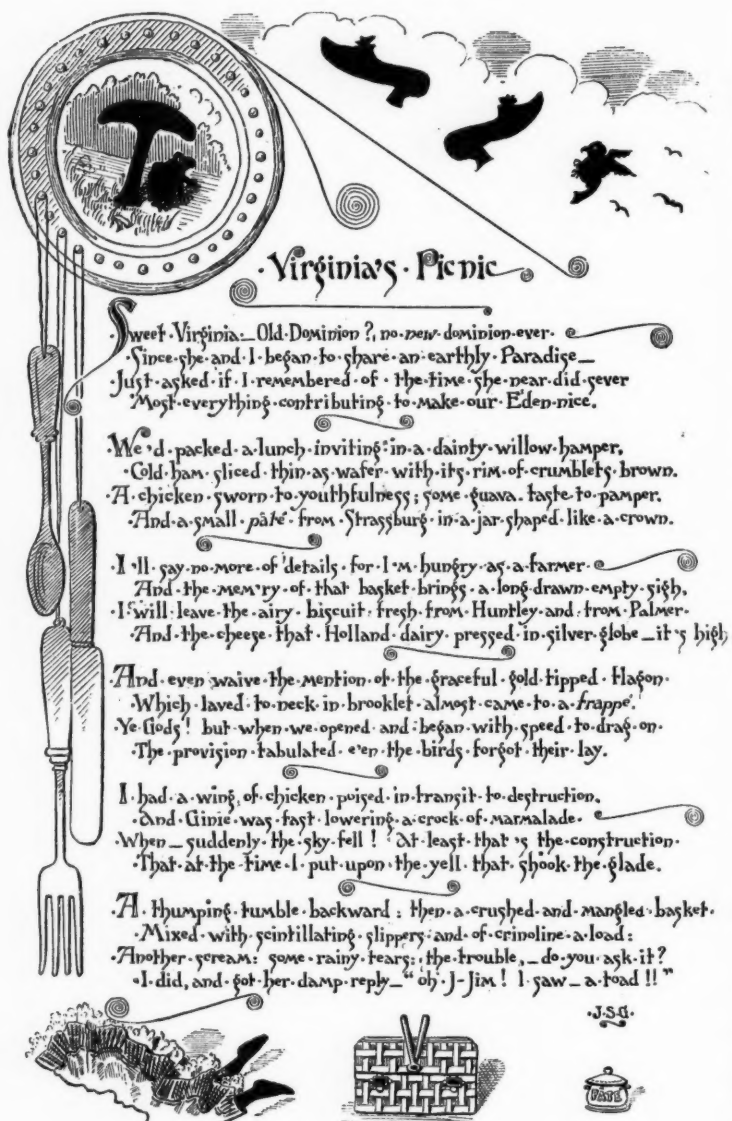 Virginia's Picnic
Sweet Virginia:—Old Dominion?, no new dominion ever.
Since she and I began to share an earthly Paradise—
Just asked if I remembered of the time she near did sever
'Most everything contributing to make our Eden nice.
We'd packed a lunch inviting in a dainty willow hamper,
Cold ham sliced thin as wafer with its rim of crumblets brown.
A chicken sworn to youthfulness; some guava taste to pamper.
And a small pâté from Strassburg in a jar shaped like a crown.
I'll say no more of details for I'm hungry as a farmer
And the mem'ry of that basket brings a long drawn empty sigh,
I will leave the airy biscuit fresh from Huntley and from Palmer
And the cheese that Holland dairy pressed in silver globe—it's high
And even waive the mention of the graceful gold tipped flagon
Which laved to neck in brooklet almost came to a frappé.
Ye Gods! but when we opened and began with speed to drag on
The provision tabulated e'en the birds forgot their lay.
I had a wing of chicken poised in transit to destruction,
And Ginie was fast lowering a crock of marmalade
When—suddenly the sky fell! At least that's the construction
That at the time I put upon the yell that shook the glade.
A thumping tumble backward: then a crushed and mangled basket
Mixed with scintillating slippers and of crinoline a load:
Another scream: some rainy tears: the trouble,—do you ask it?
I did, and got her damp reply—"oh J-Jim! I saw—a toad!!"
J.S.G.
PATE